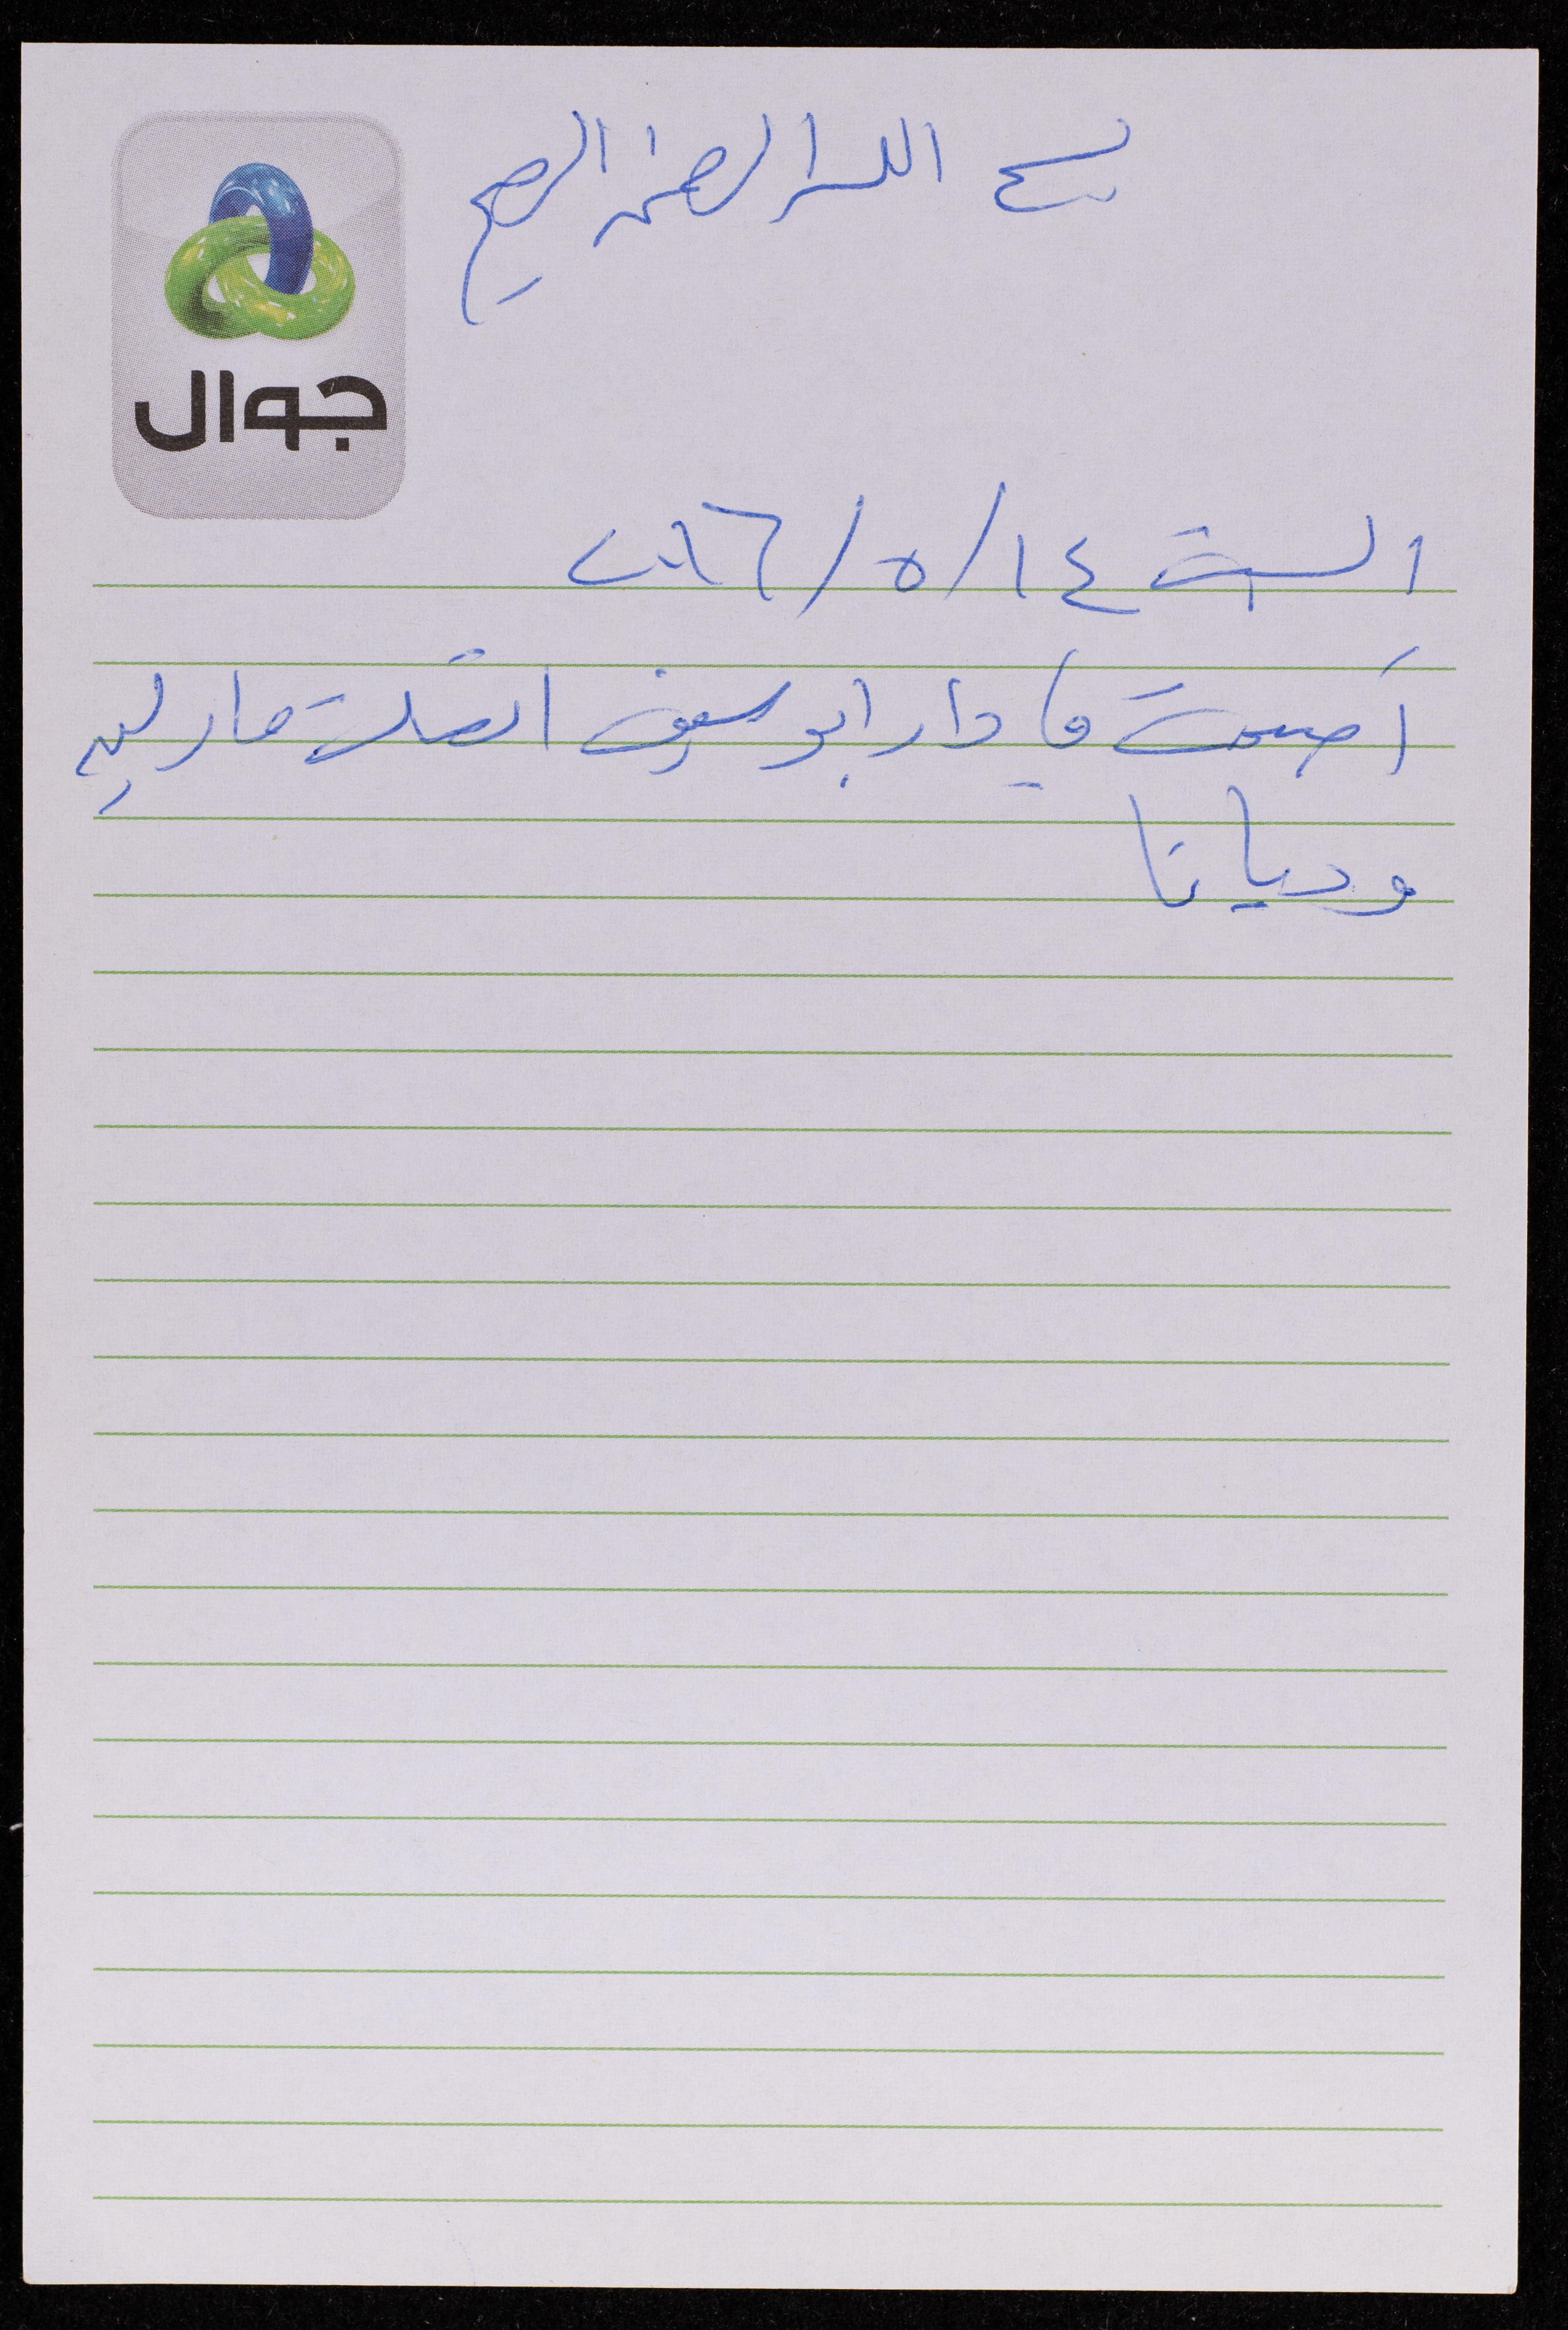 بسم الله الرحمن الرحيم
جوال
السبت ١٤/٥/٢٠١٦
أصبحت في دار ابو يوسف اتصلت مارلين
وديانا